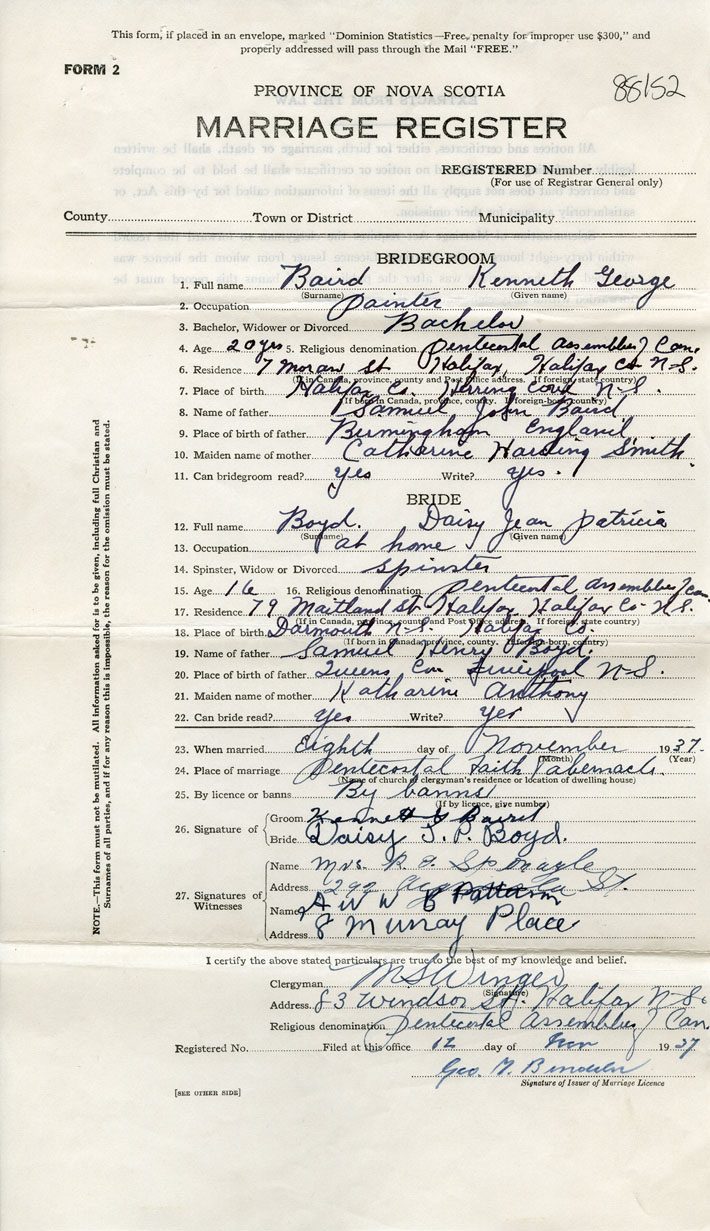 This form, if placed in an envelope, marked "Dominion Statistics—Free, penalty for improper use $300," and
properly addressed will pass through the Mail "FREE."
FORM 2
88152
PROVINCE OF NOVA SCOTIA
MARRIAGE REGISTER
REGISTERED Number
(For use of Registrar General only)
County Town or District Municipality
BRIDEGROOM
1. Full name Baird Kenneth George
(Surname) (Given name)
2. Occupation Painter
3. Bachelor, Widower or Divorced Bachelor
4. Age 20 yrs 5. Religious denomination Pentecostal Assemblies Can.
6. Residence 7 Moran St Halifax, Halifax Co N-S.
(If in Canada, province, county and Post Office address. If foreign, state country)
7. Place of birth Halifax Co. Herring Cove N-S.
(If born in Canada, province, county. If foreign-born, country)
8. Name of father Samuel John Baird
9. Place of birth of father Birmingham England
10. Maiden name of mother Catharine Harding Smith
11. Can bridegroom read? yes Write? yes.
BRIDE
12. Full name Boyd. Daisy Jean Patricia
(Surname) (Given name)
13. Occupation at home
14. Spinster, Widow or Divorced Spinster
15. Age 16 16. Religious denomination Pentecostal Assemblies Can
17. Residence 79 Maitland St Halifax Halifax Co N.S.
(If in Canada, province, county and Post Office address. If foreign, state country)
18. Place of birth Darmouth N-S. Halifax Co.
(If born in Canada, province, county. If foreign-born, country)
19. Name of father Samuel Henry Boyd.
20. Place of birth of father Queens Con Liverpool N-S.
21. Maiden name of mother Katharine Anthony
22. Can bride read? Yes Write? Yes
23. When married Eighth day of November 1937-
(Month) (Year)
24. Place of marriage Pentecostal Faith Tabernacle.
(Name of church of clergyman's residence or location of dwelling house)
25. By licence or banns By banns
(If by licence, give number)
26. Signature of
Groom Kenneth G Baird
Bride Daisy J. P. Boyd.
27. Signatures of Witnesses
Name Mrs. R. E. Spinagle
Address 292 St.
Name A W W Patterson
Address 8 Murray Place
I certify the above stated particulars are true to the best of my knowledge and belief.
Clergyman M S Winger
(Signature)
Address 83 Windsor St. Halifax N-S.
Religious denomination Pentecostal Assemblies Can.
Registered No. Filed at this office 12 day of Nov 1937
Geo.
Signature of Issuer of Marriage Licence
[SEE OTHER SIDE]
NOTE.—This form must not be mutilated. All information asked for is to be given, including full Christian and
Surnames of all parties, and if for any reason this is impossible, the reason for the omission must be stated.